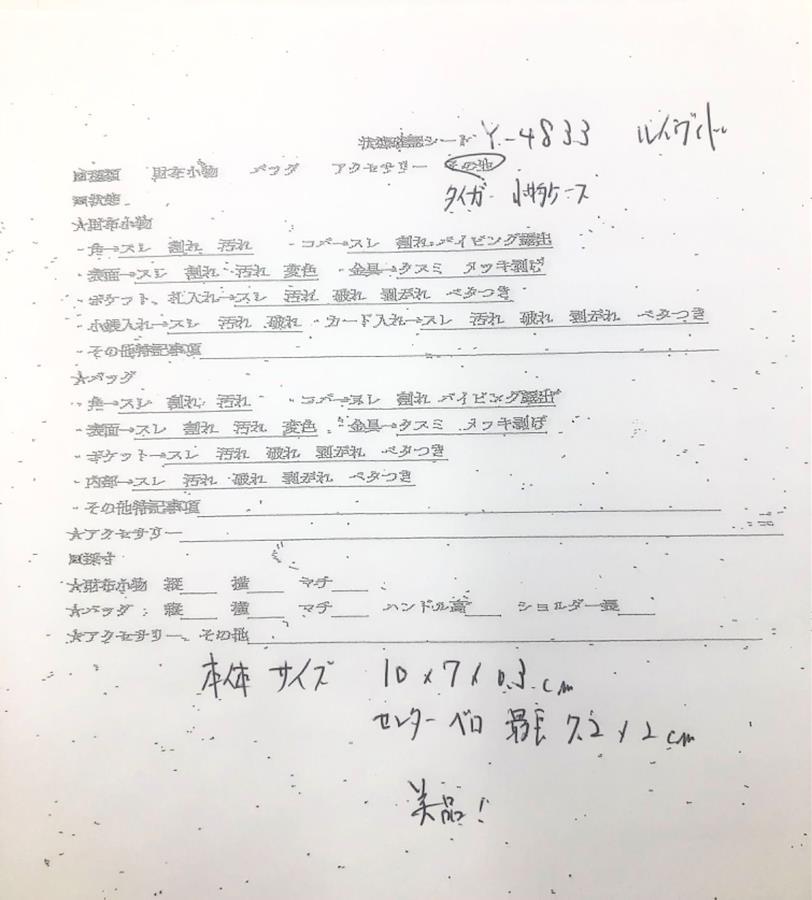 状態確認シート Y-4833 ルイヴィトン
■種類 財布小物 バッグ アクセサリー その他
■状態 タイガ 小物ケース
★財布小物
・角→スレ 割れ 汚れ ・コバ→スレ 割れ パイピング露出
・表面→スレ 割れ 汚れ 変色 ・金具→クスミ メッキ剥げ
・ポケット、札入れ→スレ 汚れ 破れ 剥がれ ベタつき
・小銭入れ→スレ 汚れ 破れ ・カード入れ→スレ 汚れ 破れ 剥がれ ベタつき
・その他特記事項
★バッグ
・角→スレ 割れ 汚れ ・コバ→スレ 割れ パイピング露出
・表面→スレ 割れ 汚れ 変色 ・金具→クスミ メッキ剥げ
・ポケット→スレ 汚れ 破れ 剥がれ ベタつき
・内部→スレ 汚れ 破れ 剥がれ ベタつき
・その他特記事項
★アクセサリー
■採寸
★財布小物 縦 横 マチ
★バッグ 縦 横 マチ ハンドル高 ショルダー長
★アクセサリー、その他
本体サイズ 10 x 7 x 0.3 cm
センターベロ 最長 7.2 x 2 cm
美品!